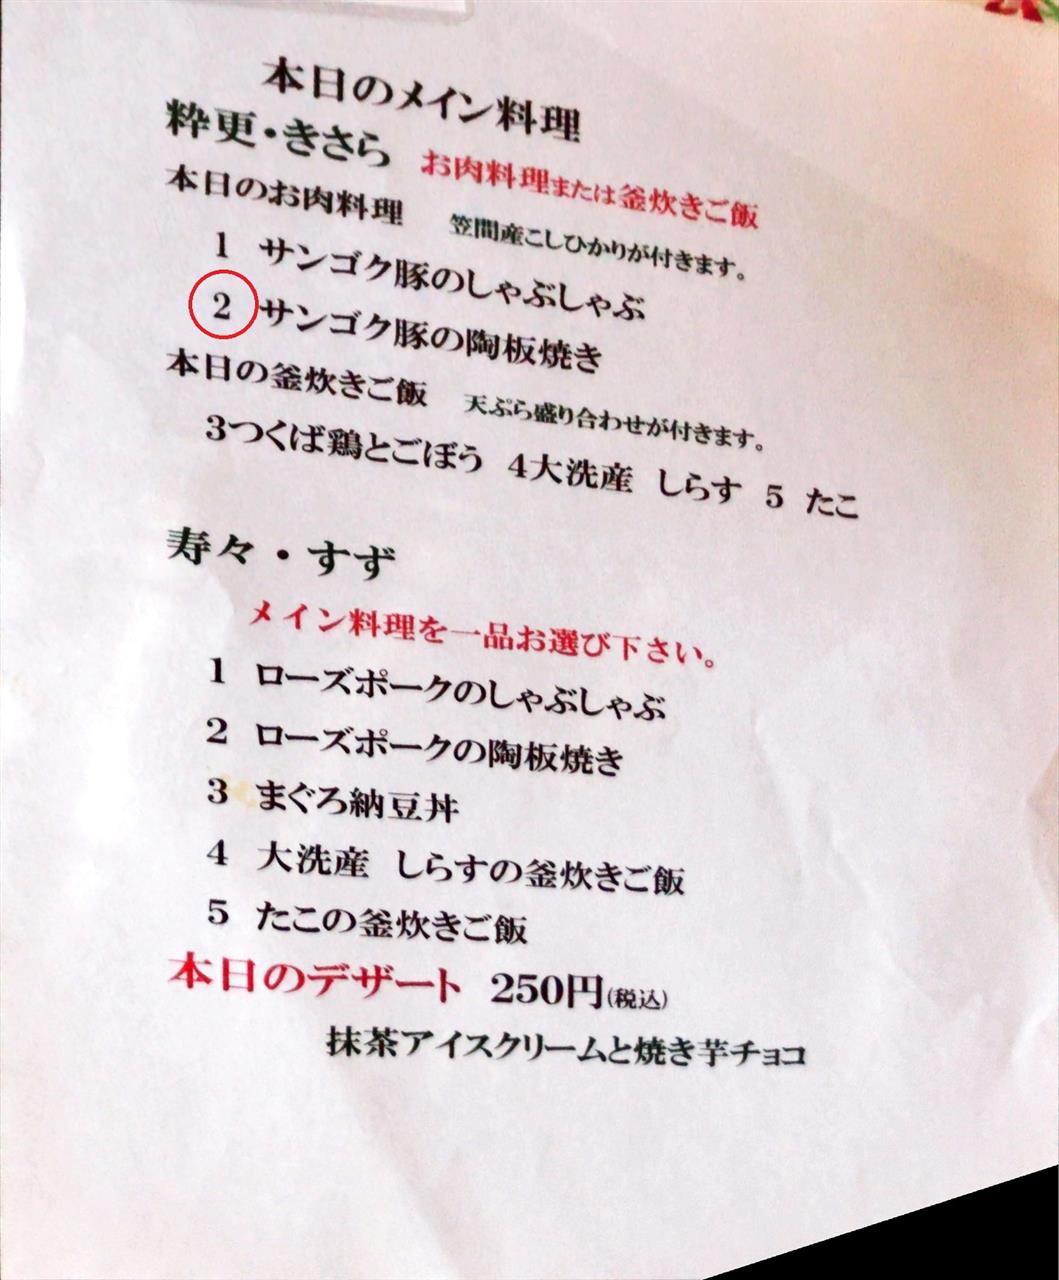 本日のメイン料理
粋更・きさら お肉料理または釜炊きご飯
本日のお肉料理 笠間産こしひかりが付きます。
1 サンゴク豚のしゃぶしゃぶ
2 サンゴク豚の陶板焼き
本日の釜炊きご飯 天ぷら盛り合わせが付きます。
3つくば鶏とごぼう 4大洗産 しらす 5 たこ
寿々・すず
メイン料理を一品お選び下さい。
1 ローズポークのしゃぶしゃぶ
2 ローズポークの陶板焼き
3 まぐろ納豆丼
4 大洗産 しらすの釜炊きご飯
5 たこの釜炊きご飯
本日のデザート 250円(税込)
抹茶アイスクリームと焼き芋チョコ